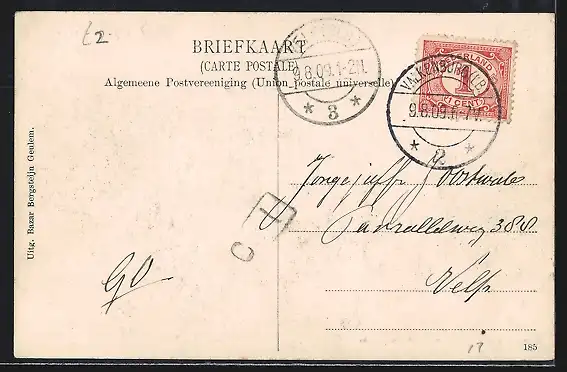 £2
BRIEFKAART
(CARTE POSTALE)
Algemeene Postvereeniging (Union postale universelle)
9.8.09.1-2N.
* 3 *
NEDERLAND
1
1 CENT
VALKENBURG
9.8.09.
* 2 *
Uitg. Bazar Bergsteijn Geulem.
Oostwale
388
Velp
C
GO
17
185